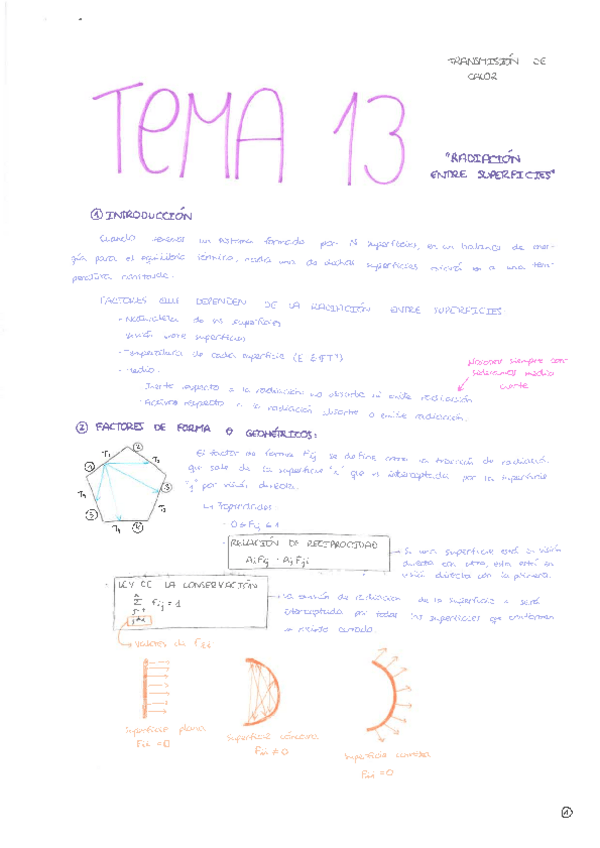 TRANSMISIÓN DE
CALOR
TEMA 13
"RADIACIÓN
ENTRE SUPERFICIES"
① INTRODUCCIÓN
Cuando tenemos un sistema formado por N superficies, en un balance de ener-
gía para el equilibrio térmico, cada una de dichas superficies estará a una tem-
peratura
FACTORES QUE DEPENDEN DE LA RADIACIÓN ENTRE SUPERFICIES:
- Naturaleza de las superficies
visión entre superficies
- Temperatura de cada superficie
- Medio:
Inerte respecto a la radiación: no absorbe ni emite radiación
- Activos respecto a la radiación absorbe o emite radiación.
nosotros siempre con-
sideramos medio
inerte
② FACTORES DE FORMA O GEOMÉTRICOS:
El factor de forma Fij se define como la fracción de radiación
que sale de la superficie "i" que es interceptada por la superficie
"j" por visión directa.
↳ Propiedades:
- 0 ≤ Fij ≤ 1
RELACIÓN DE RECIPROCIDAD
AiFij = AjFji
Si una superficie está en visión
directa con otra, esta está en
visión directa con la primera.
LEY DE LA CONSERVACIÓN
Σ Fij = 1
La suma de radiación de la superficie i será
interceptada por todas las superficies que conforman
el recinto cerrado.
→ Valores de Fii
Superficie plana
Fii = 0
Superficie cóncava
Fii ≠ 0
Superficie convexa
Fii = 0
①